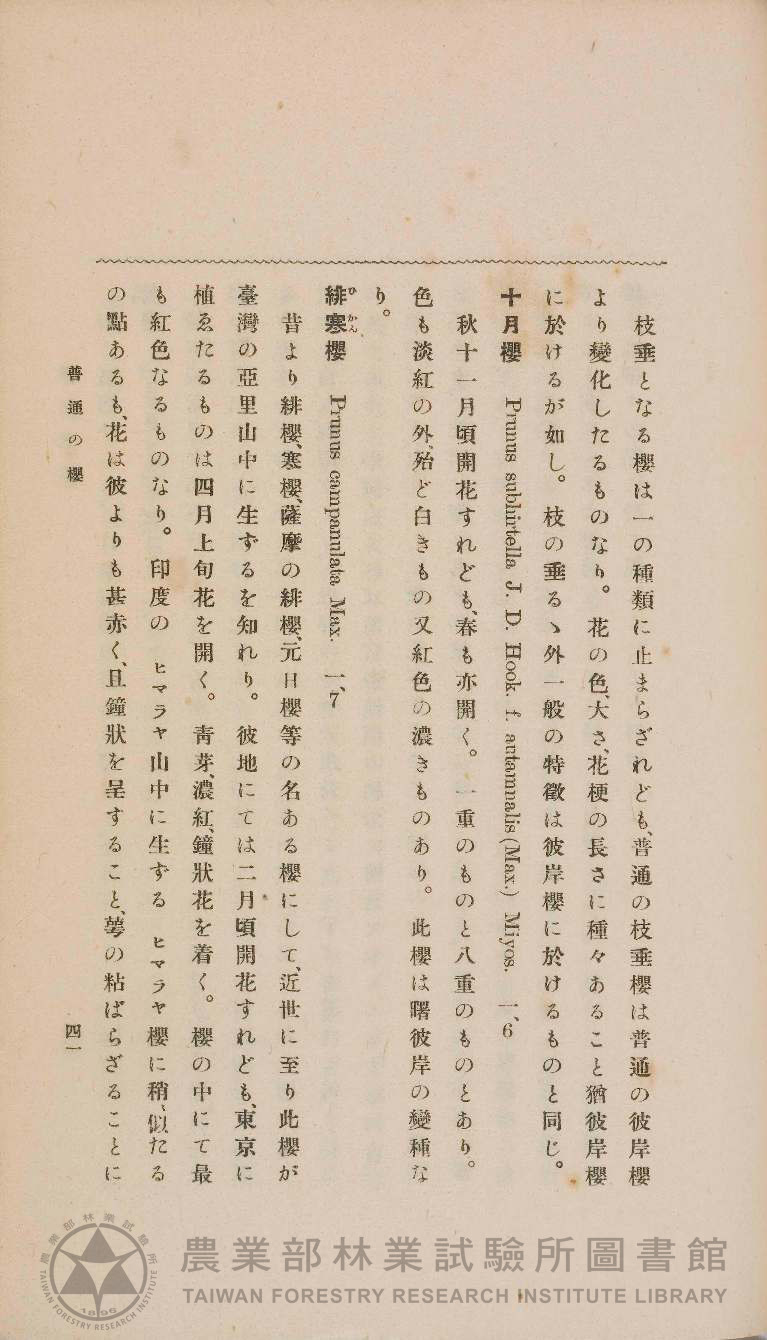 枝垂となる櫻は一の種類に止まらざれども、普通の枝垂櫻は普通の彼岸櫻
より變化したるものなり。花の色、大さ、花梗の長さに種々あること猶彼岸櫻
に於けるが如し。枝の垂るゝ外一般の特徵は彼岸櫻に於けるものと同じ。
十月櫻 Prunus subhirtella J. D. Hook. f. autamnalis (Max.) Miyos. 一、6
秋十一月頃開花すれども、春も亦開く。一重のものと八重のものとあり。
色も淡紅の外、殆ど白きもの又紅色の濃きものあり。此櫻は曙彼岸の變種な
り。
緋寒櫻 Prunus campanulata Max. 一、7
ひかん
昔より緋櫻、寒櫻、薩摩の緋櫻、元日櫻等の名ある櫻にして、近世に至り此櫻が
臺灣の亞里山中に生ずるを知れり。彼地にては二月頃開花すれども、東京に
植ゑたるものは四月上旬花を開く。靑芽、濃紅、鐘狀花を着く。櫻の中にて最
も紅色なるものなり。印度のヒマラヤ山中に生ずるヒマラヤ櫻に稍、似たる
の點あるも、花は彼よりも甚赤く、且鐘狀を呈すること、萼の粘ばらざることに
普通の櫻
四一
農業部林業試驗所圖書館
TAIWAN FORESTRY RESEARCH INSTITUTE LIBRARY
農業部林業試驗所
TAIWAN FORESTRY RESEARCH INSTITUTE
1896